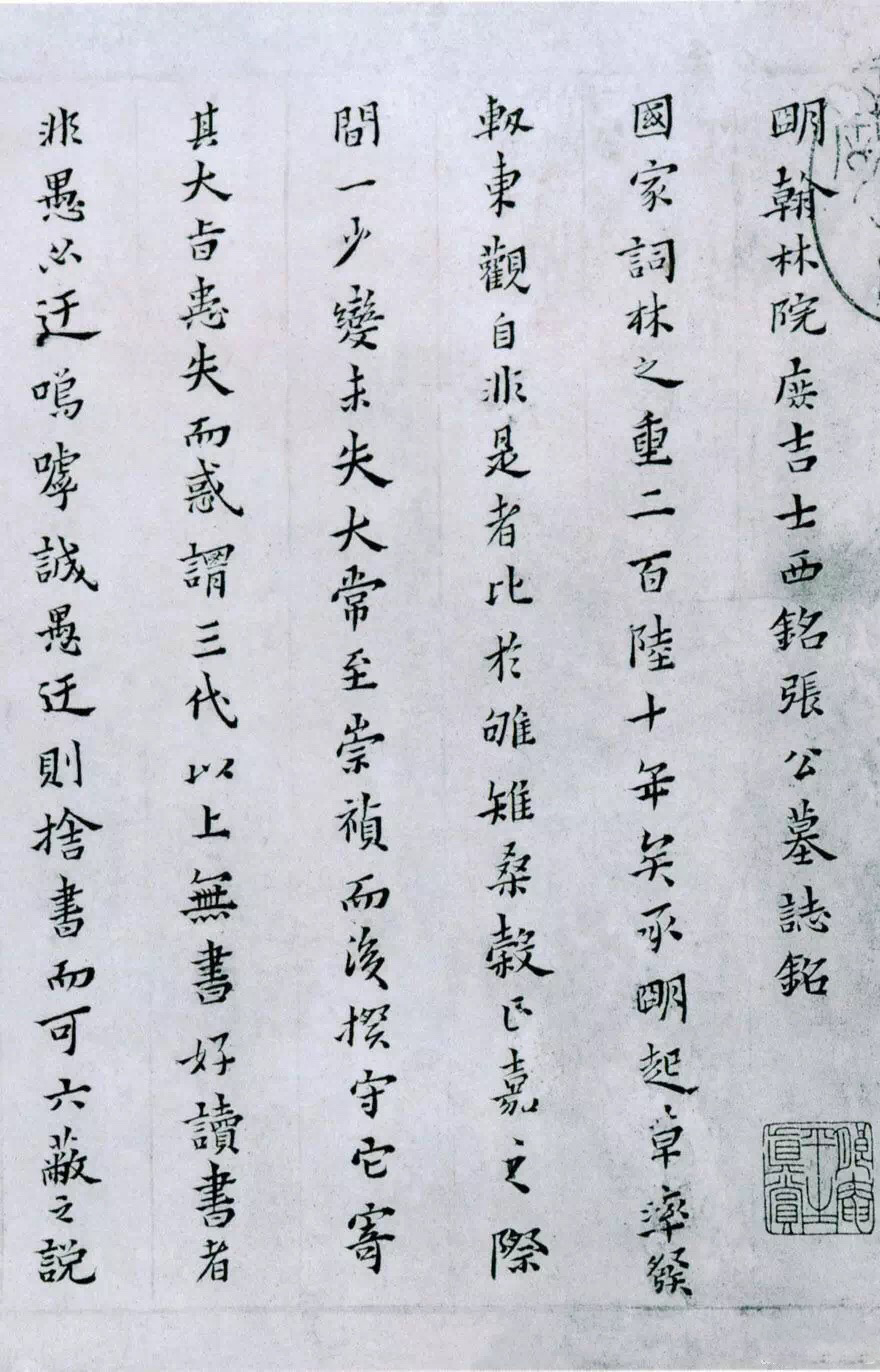 朙翰林院庶吉士西銘張公墓誌銘
國家詞林之重二百陸十年矣承朙起草率發
軔東觀自非是者比於雊雉桑穀正嘉之際
間一少變未失大常至崇禎而後揆守它寄
其大旨患失而惑謂三代以上無書好讀書者
非愚必迂嗚嘑誠愚迂則捨書而可六蔽之說